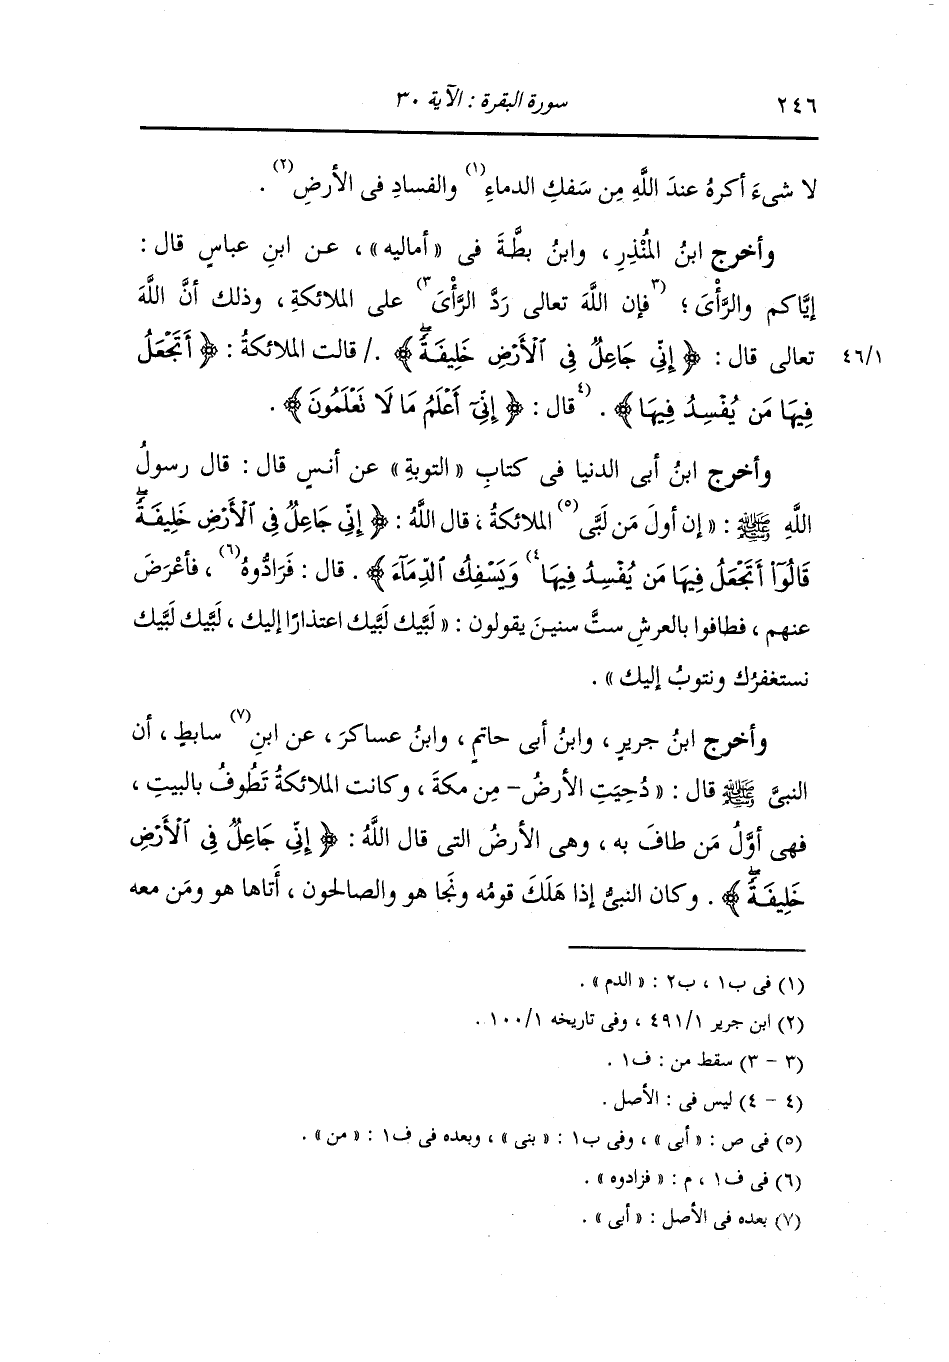 ٢٤٦ سورة البقرة : الآية ٣٠
لا شىءَ أكرهُ عندَ اللَّهِ مِن سَفكِ الدماءِ(١) والفسادِ فى الأرضِ(٢) .
وأخرج ابنُ المُنْذِرِ ، وابنُ بطَّةَ فى « أماليه» ، عن ابنِ عباسٍ قال :
إيَّاكم والرَّأْىَ ؛ (٣فإن اللَّهَ تعالى رَدَّ الرَّأْىَ٣) على الملائكةِ ، وذلك أنَّ اللَّهَ
تعالى قال : ﴿ إِنِّي جَاعِلٌ فِي ٱلْأَرْضِ خَلِيفَةًۖ ﴾ ./ قالت الملائكةُ : ﴿ أَتَجْعَلُ ٤٦/١
فِيهَا مَن يُفْسِدُ فِيهَا ﴾ . (٤قال : ﴿ إِنِّيٓ أَعْلَمُ مَا لَا تَعْلَمُونَ ﴾ .
وأخرج ابنُ أبى الدنيا فى كتابِ « التوبةِ» عن أنسٍ قال : قال رسولُ
اللَّهِ ﷺ : « إن أولَ مَن لَبَّى(٥) الملائكةُ ، قال اللَّهُ : ﴿ إِنِّي جَاعِلٌ فِي ٱلْأَرْضِ خَلِيفَةًۖ
قَالُوٓا۟ أَتَجْعَلُ فِيهَا مَن يُفْسِدُ فِيهَا٤) وَيَسْفِكُ ٱلدِّمَآءَ ﴾ . قال : فَرَادُّوهُ(٦) ، فأعْرَضَ
عنهم ، فطافوا بالعرشِ ستَّ سنينَ يقولون : « لَبَّيك لَبَّيك اعتذارًا إليك ، لَبَّيك لَبَّيك
نستغفرُك ونتوبُ إليك » .
وأخرج ابنُ جريرٍ ، وابنُ أبى حاتمٍ ، وابنُ عساكرَ ، عن ابنِ(٧) سابطٍ ، أن
النبىَّ ﷺ قال : « دُحِيَتِ الأرضُ- مِن مكةَ ، وكانت الملائكةُ تَطُوفُ بالبيتِ ،
فهى أوَّلُ مَن طافَ به ، وهى الأرضُ التى قال اللَّهُ : ﴿ إِنِّي جَاعِلٌ فِي ٱلْأَرْضِ
خَلِيفَةًۖ ﴾ . وكان النبىُّ إذا هَلَكَ قومُه ونَجا هو والصالحون ، أَتاها هو ومَن معه
(١) فى ب١ ، ب٢ : « الدم » .
(٢) ابن جرير ٤٩١/١ ، وفى تاريخه ١٠٠/١ .
(٣ - ٣) سقط من : ف١ .
(٤ - ٤) ليس فى : الأصل .
(٥) فى ص : « أبى » ، وفى ب١ : « بنى » ، وبعده فى ف١ : « من » .
(٦) فى ف١ ، م : « فزادوه » .
(٧) بعده فى الأصل : « أبى » .